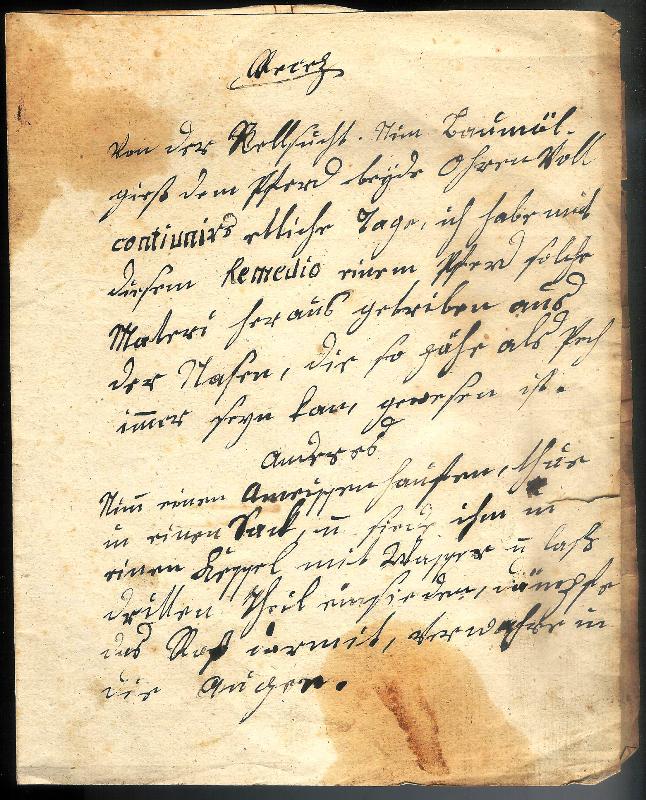 Von der Rellsucht. Nim Baumöl.
gieß dem Pferd beÿde Ohren Voll
continuirs etliche Tage, ich habe mit
diesem Remedio einem Pferd solche
Materi heraus getriben aus
der Nasen, die so zähe als Pech
immer seyn kan, gewesen ist.
Anderes
Nim̅ einen Ameissenhauffen, thue
in einen Sack, u̅ siede ihm in
einen Kessel mit Wasser u̅ lass
dritten Theil einsieden, dämpfe
das Roß darmit, verwahre im
die Augen.